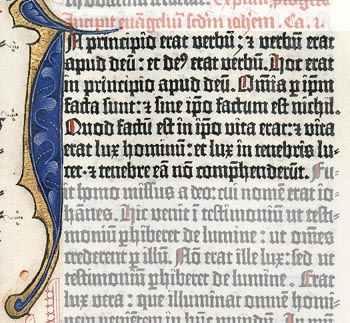 Incipit euangelium scdm iohēm. Ca. i
In principio erat verbū: ⁊ verbū erat
apud deū: et de⁹ erat verbū. Hoc erat
in principio apud deū. Omīa ꝑ ip̄m
facta sunt: ⁊ sine ip̄o factum est nichil.
Quod factū est in ip̄o vita erat: ⁊ vita
erat lux hominū: et lux in tenebris lu-
cet· ⁊ tenebre eā nō comp̄henderūt. Fu-
it homo missus a deo: cui nomē erat io-
hānes. Hic venit ī testimoniū ut testi-
moniū ꝑhiberet de lumine: ut omēs
crederent ꝑ illū. Nō erat ille lux: sed ut
testimoniū ꝑhiberet de lumine. Erat
lux vera: que illuminat omnē homi-
nem